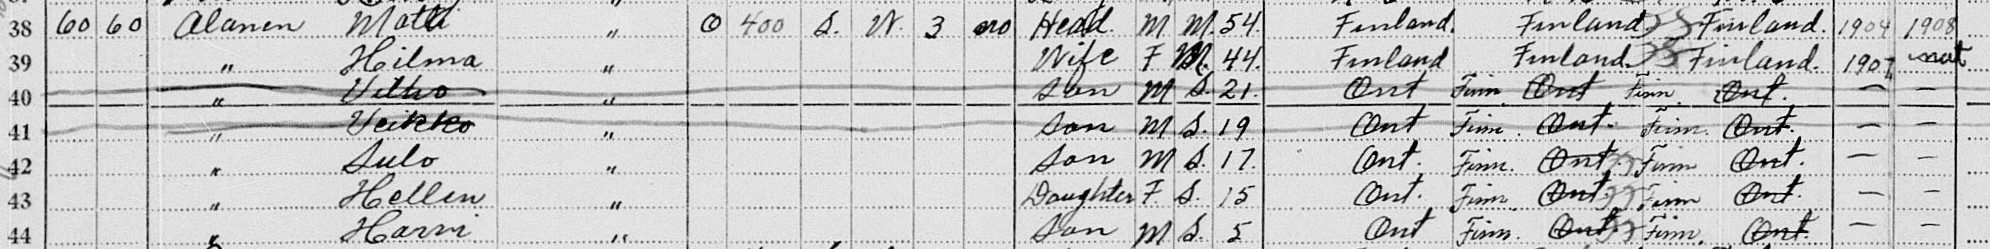 38 60 60 Alanen Matti " O 400 S. W. 3 no Head M M. 54 Finland. Finland Finland. 1904 1908
39 " Hilma " Wife F M. 44. Finland Finland. Finland. 1907 nat
40 " Vilho " Son M S. 21. Ont Finn Ont Finn Ont. — —
41 " Veikko " Son M S. 19 Ont Finn. Ont. Finn. Ont. — —
42 " Sulo " Son M S. 17. Ont. Finn. Ont. Finn Ont. — —
43 " Hellen " Daughter F. S. 15 Ont. Finn. Ont. Finn Ont. — —
44 " Harvi " Son M S. 5 Ont Finn. Ont. Finn. Ont. — —